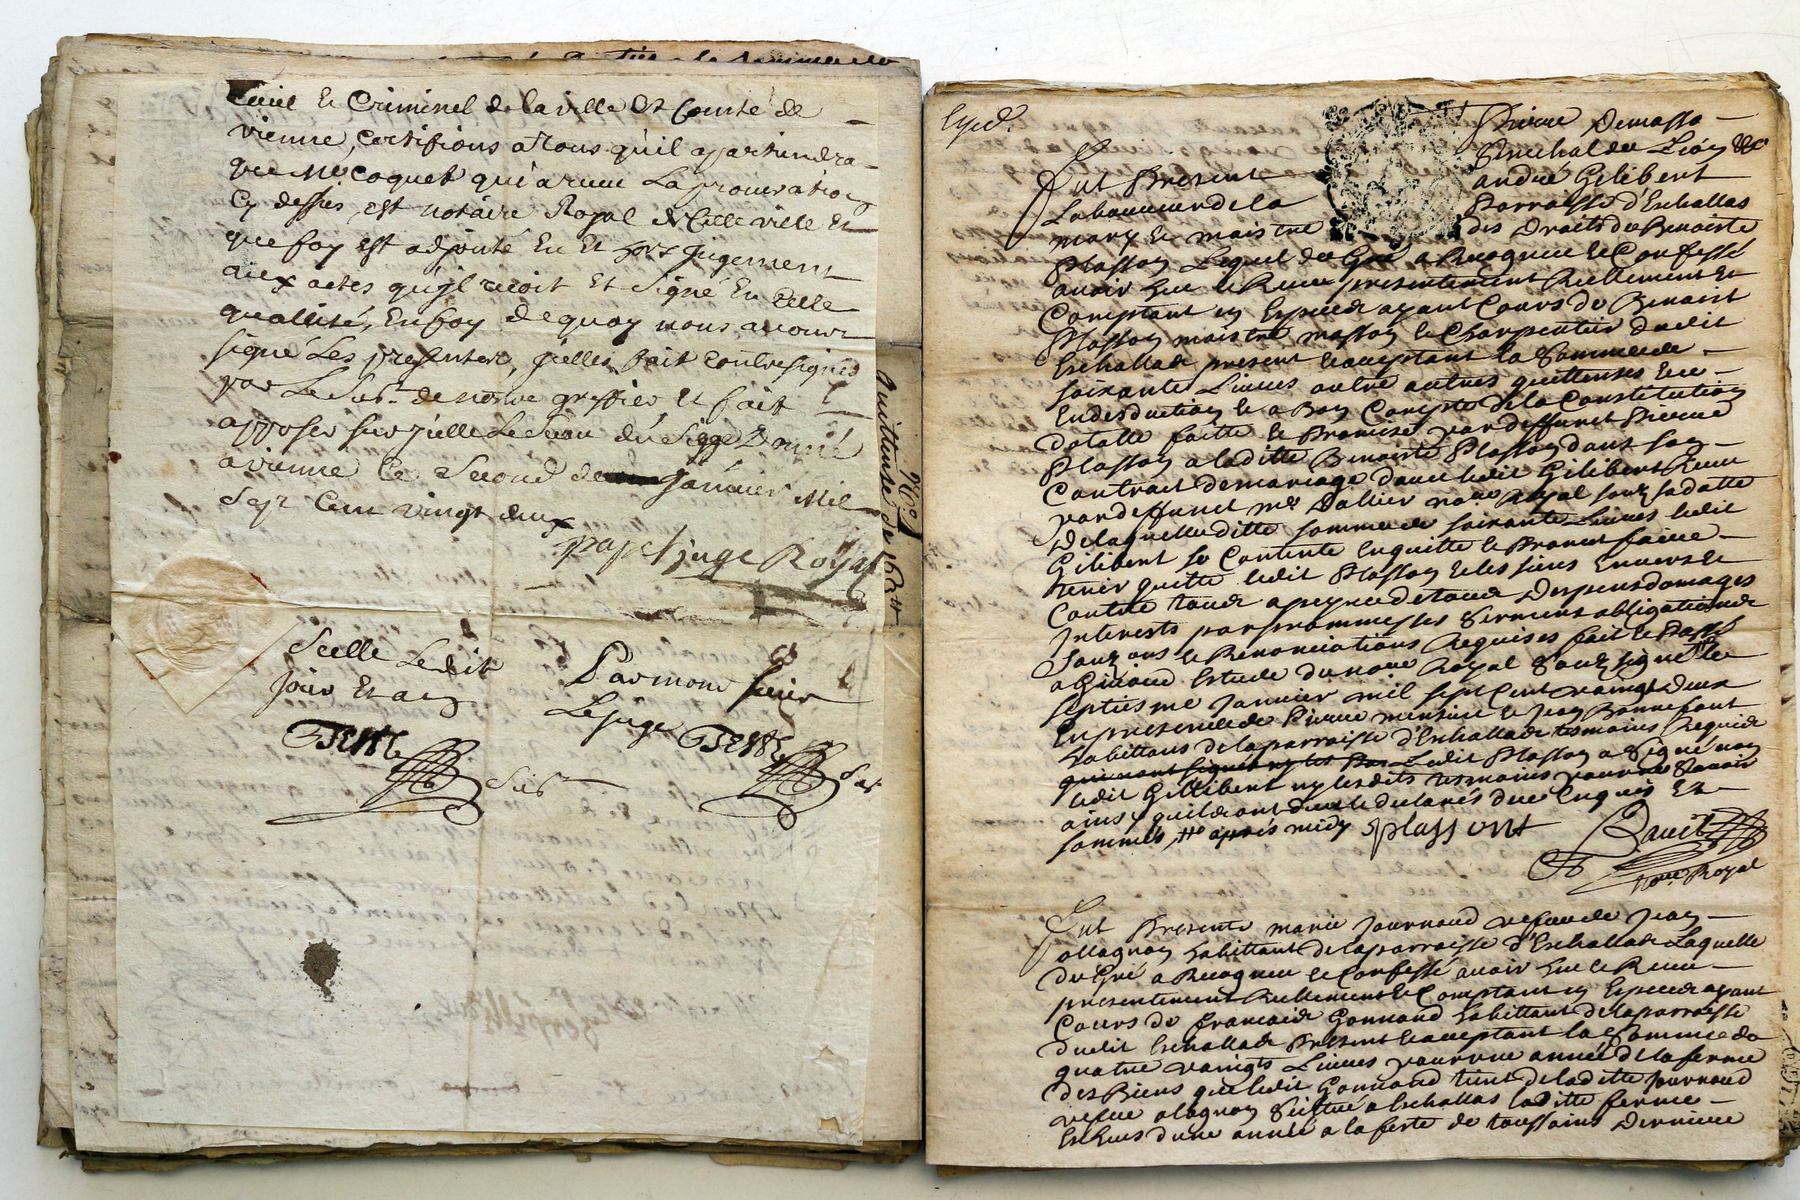 Civil et Criminel de la ville Et Comté de
vienne, Certifions a tous qu'il apartiendra
que Me Coquet qui a receu La procuration
Cy dessus, est notaire Royal de Cette ville Et
que foy est adjouté En Et hors Jugement
aux actes qu'jl reçoit Et Signé En Celle
quallité, En foy de quoy nous avons
signé Les presentes, jcelles fait contresigner
par Le Subt. de nostre greffier Et fait
apposer sur jcelle Le Sceau du Siege Donné
a vienne Le Second de janvier Mil
Sept Cent vingt deux
juge Royal
Scellé Ledit
jour Et an
Par mond sieur
Le juge
Subt
Quittense de 160 tt
No 1
Exped.
Fut Present
Pierre Demassa
Senechal de Lion &c
andré Gilibert
Laboureur de la
Parroisse d'Eschallas
mary Et maistre
des Droits de Benoiste
Plasson Lequel de Gré a Recogneu Et Confessé
avoir heu Et Receu presentement Reellement Et
Comptant en Especes ayant Cours de Benoist
Plasson maistre masson Et Charpentier dudit
Eschallas present Et acceptant La Somme de
soixante Livres outre autres quittenses Et en
Endeduction Et a Bon Compte de La Constitution
dotalle faitte Et Promise par deffunct Pierre
Plasson a laditte Benoiste Plasson dans son
Contrait de mariage d'avec ledit Gilibert Receu
par deffunct me Dallier nore Royal souz sa datte
De laquelle ditte somme de soixante Livres ledit
Gilibert se Contente En quitte Et Promet faire
tenir quitte ledit Plasson Et les siens Envers Et
Contre tous a peyne de tous Despens domages
Interests par promesses Serment obligations de
Souz ons Et Renonciations Requises fait Et Passé
a Givord Estude du nore Royal Souz signé Le
septiesme Janvier mil sept Cent vaingt deux
En presence de Pierre Et Jean Bonnefont
habittans de la parroisse d'Eschallas tesmoins Requis
Ledit Plasson a Signé non
ledit Gillibert ny lesdits tesmoins pour ne Scavoir
ainsy quils ont dit Et declarés de ce Enquis Et
sommés, tte apprés midy plassont
nore Royal
Fut Presente marie Journoud vefve de Jean
ollagnon habittant de la parroisse d'Eschallas Laquelle
de Gré a Recogneu Et Confessé avoir heu Et Receu
presentement Reellement Et Comptant en Especes ayant
Cours de françois Gonnand habittant de la parroisse
dudit Eschallas Present Et acceptant La Somme de
quatre vaingts Livres pour une année de la ferme
des Biens que ledit Gonnand tient de laditte Journoud
vefve olagnon Scittué a Eschallas laditte ferme
Escheus d'une année a la feste de toussains Derniere